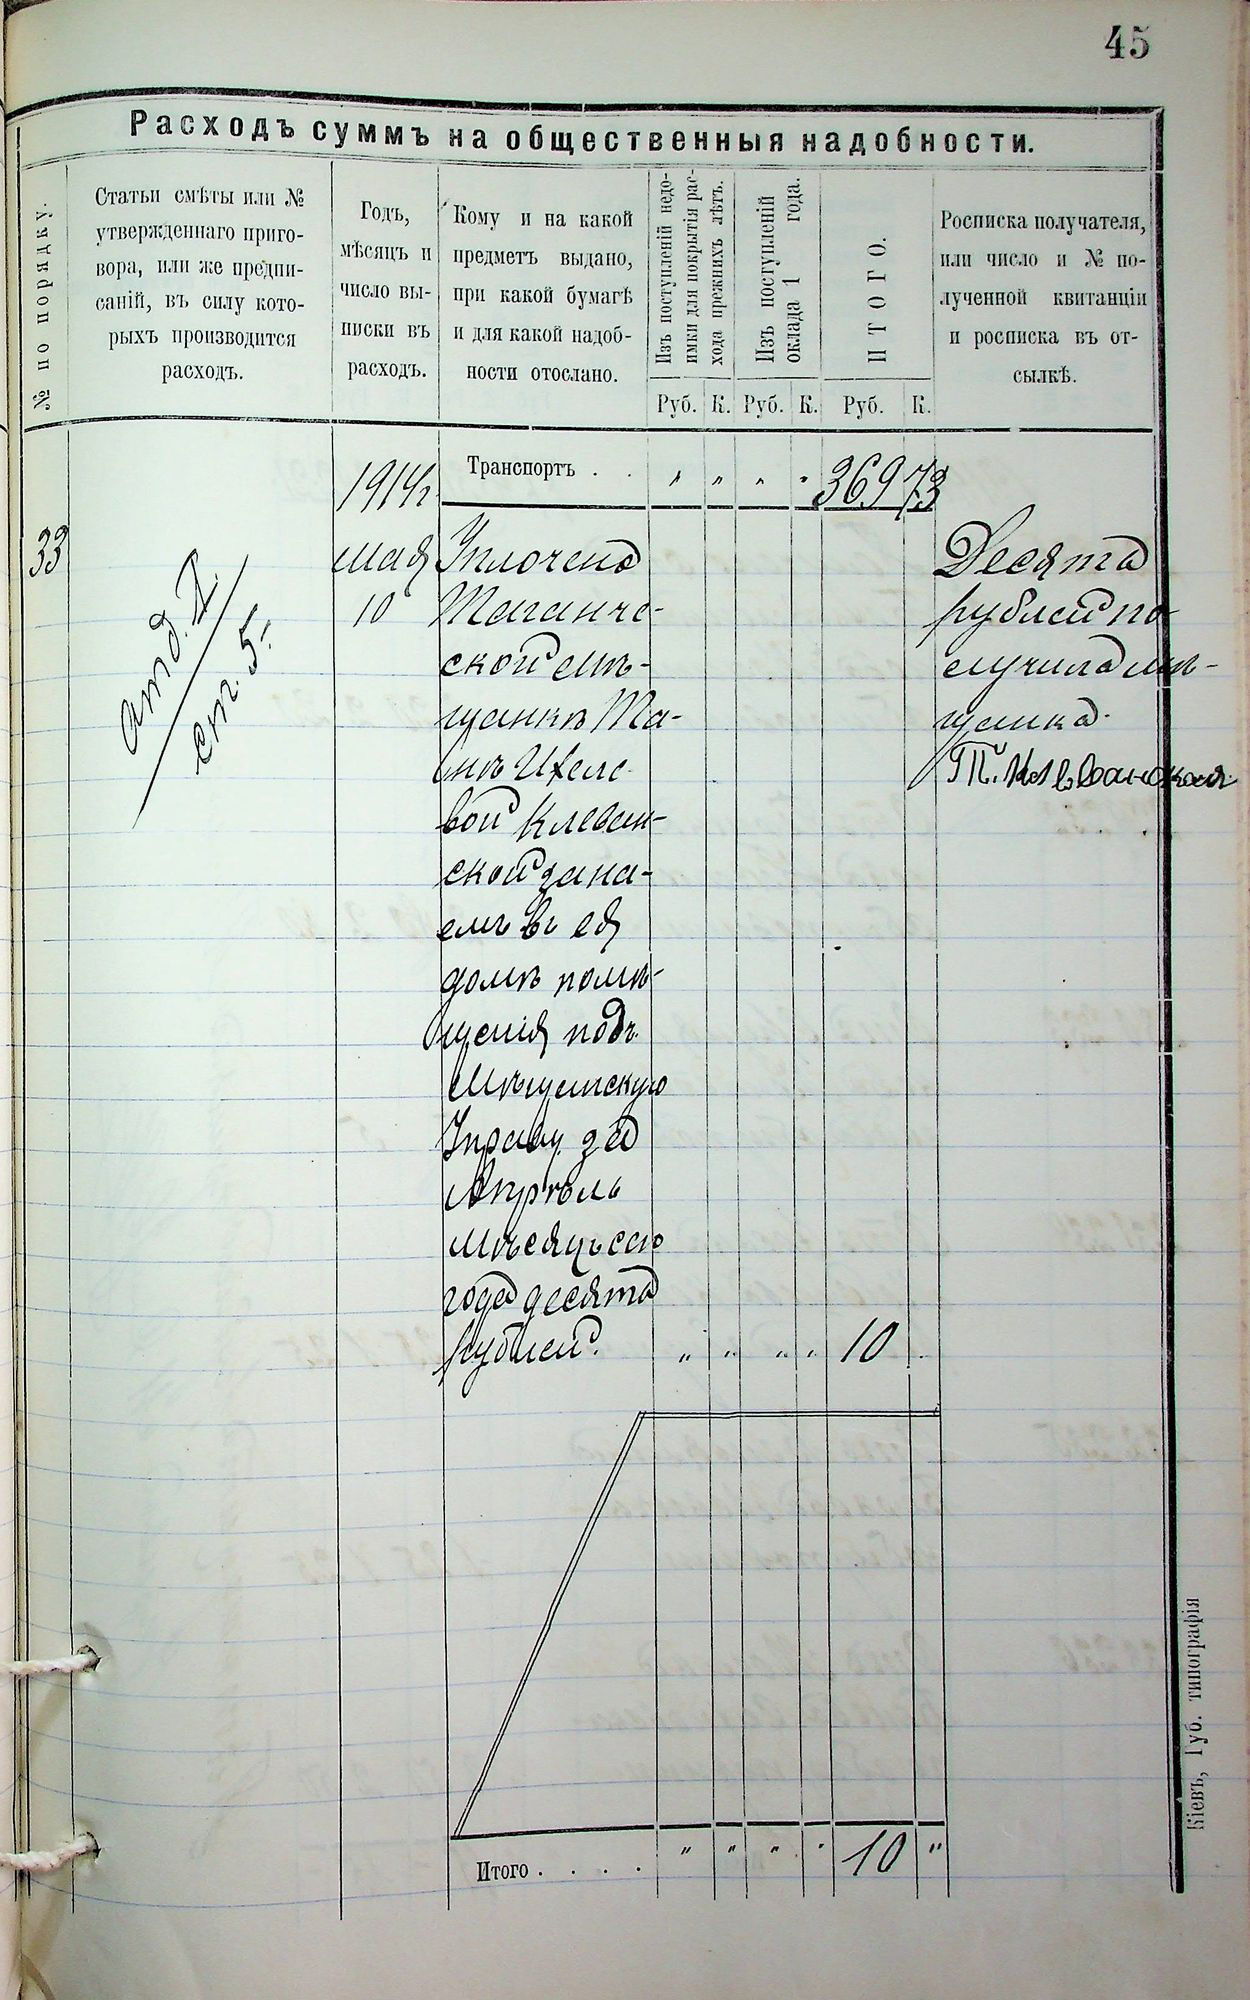 45
Расходъ суммъ на общественныя надобности.
№ по порядку.
Статьи смѣты или №
утвержденнаго приго-
вора, или же предпи-
саній, въ силу кото-
рыхъ производится
расходъ.
Годъ,
мѣсяцъ и
число вы-
писки въ
расходъ.
Кому и на какой
предметъ выдано,
при какой бумагѣ
и для какой надоб-
ности отослано.
Изъ поступленій недо-
имки для покрытія рас-
хода прежнихъ лѣтъ.
Изъ поступленій
оклада 1 года.
ИТОГО.
Росписка получателя,
или число и № по-
лученной квитанціи
и росписка въ от-
сылкѣ.
Руб. К. Руб. К. Руб. К.
1914 г. Транспортъ . . „ „ „ „ 369 73
33
отд. II
ст. 5.
мая
10
Уплочено
Таганче-
ской мѣ-
щанкѣ Та-
бвой Клеван-
ской за на-
емъ въ ея
домѣ помѣ-
щенія подъ
Мѣщанскую
Управу за
Апрѣль
мѣсяцъ сего
года десять
рублей. „ „ „ „ 10
Десять
рублей по-
лучила мѣ-
щанка
Т. Клеванская
Итого . . . . „ „ „ „ 10 „
Кіевъ, Губ. типографія